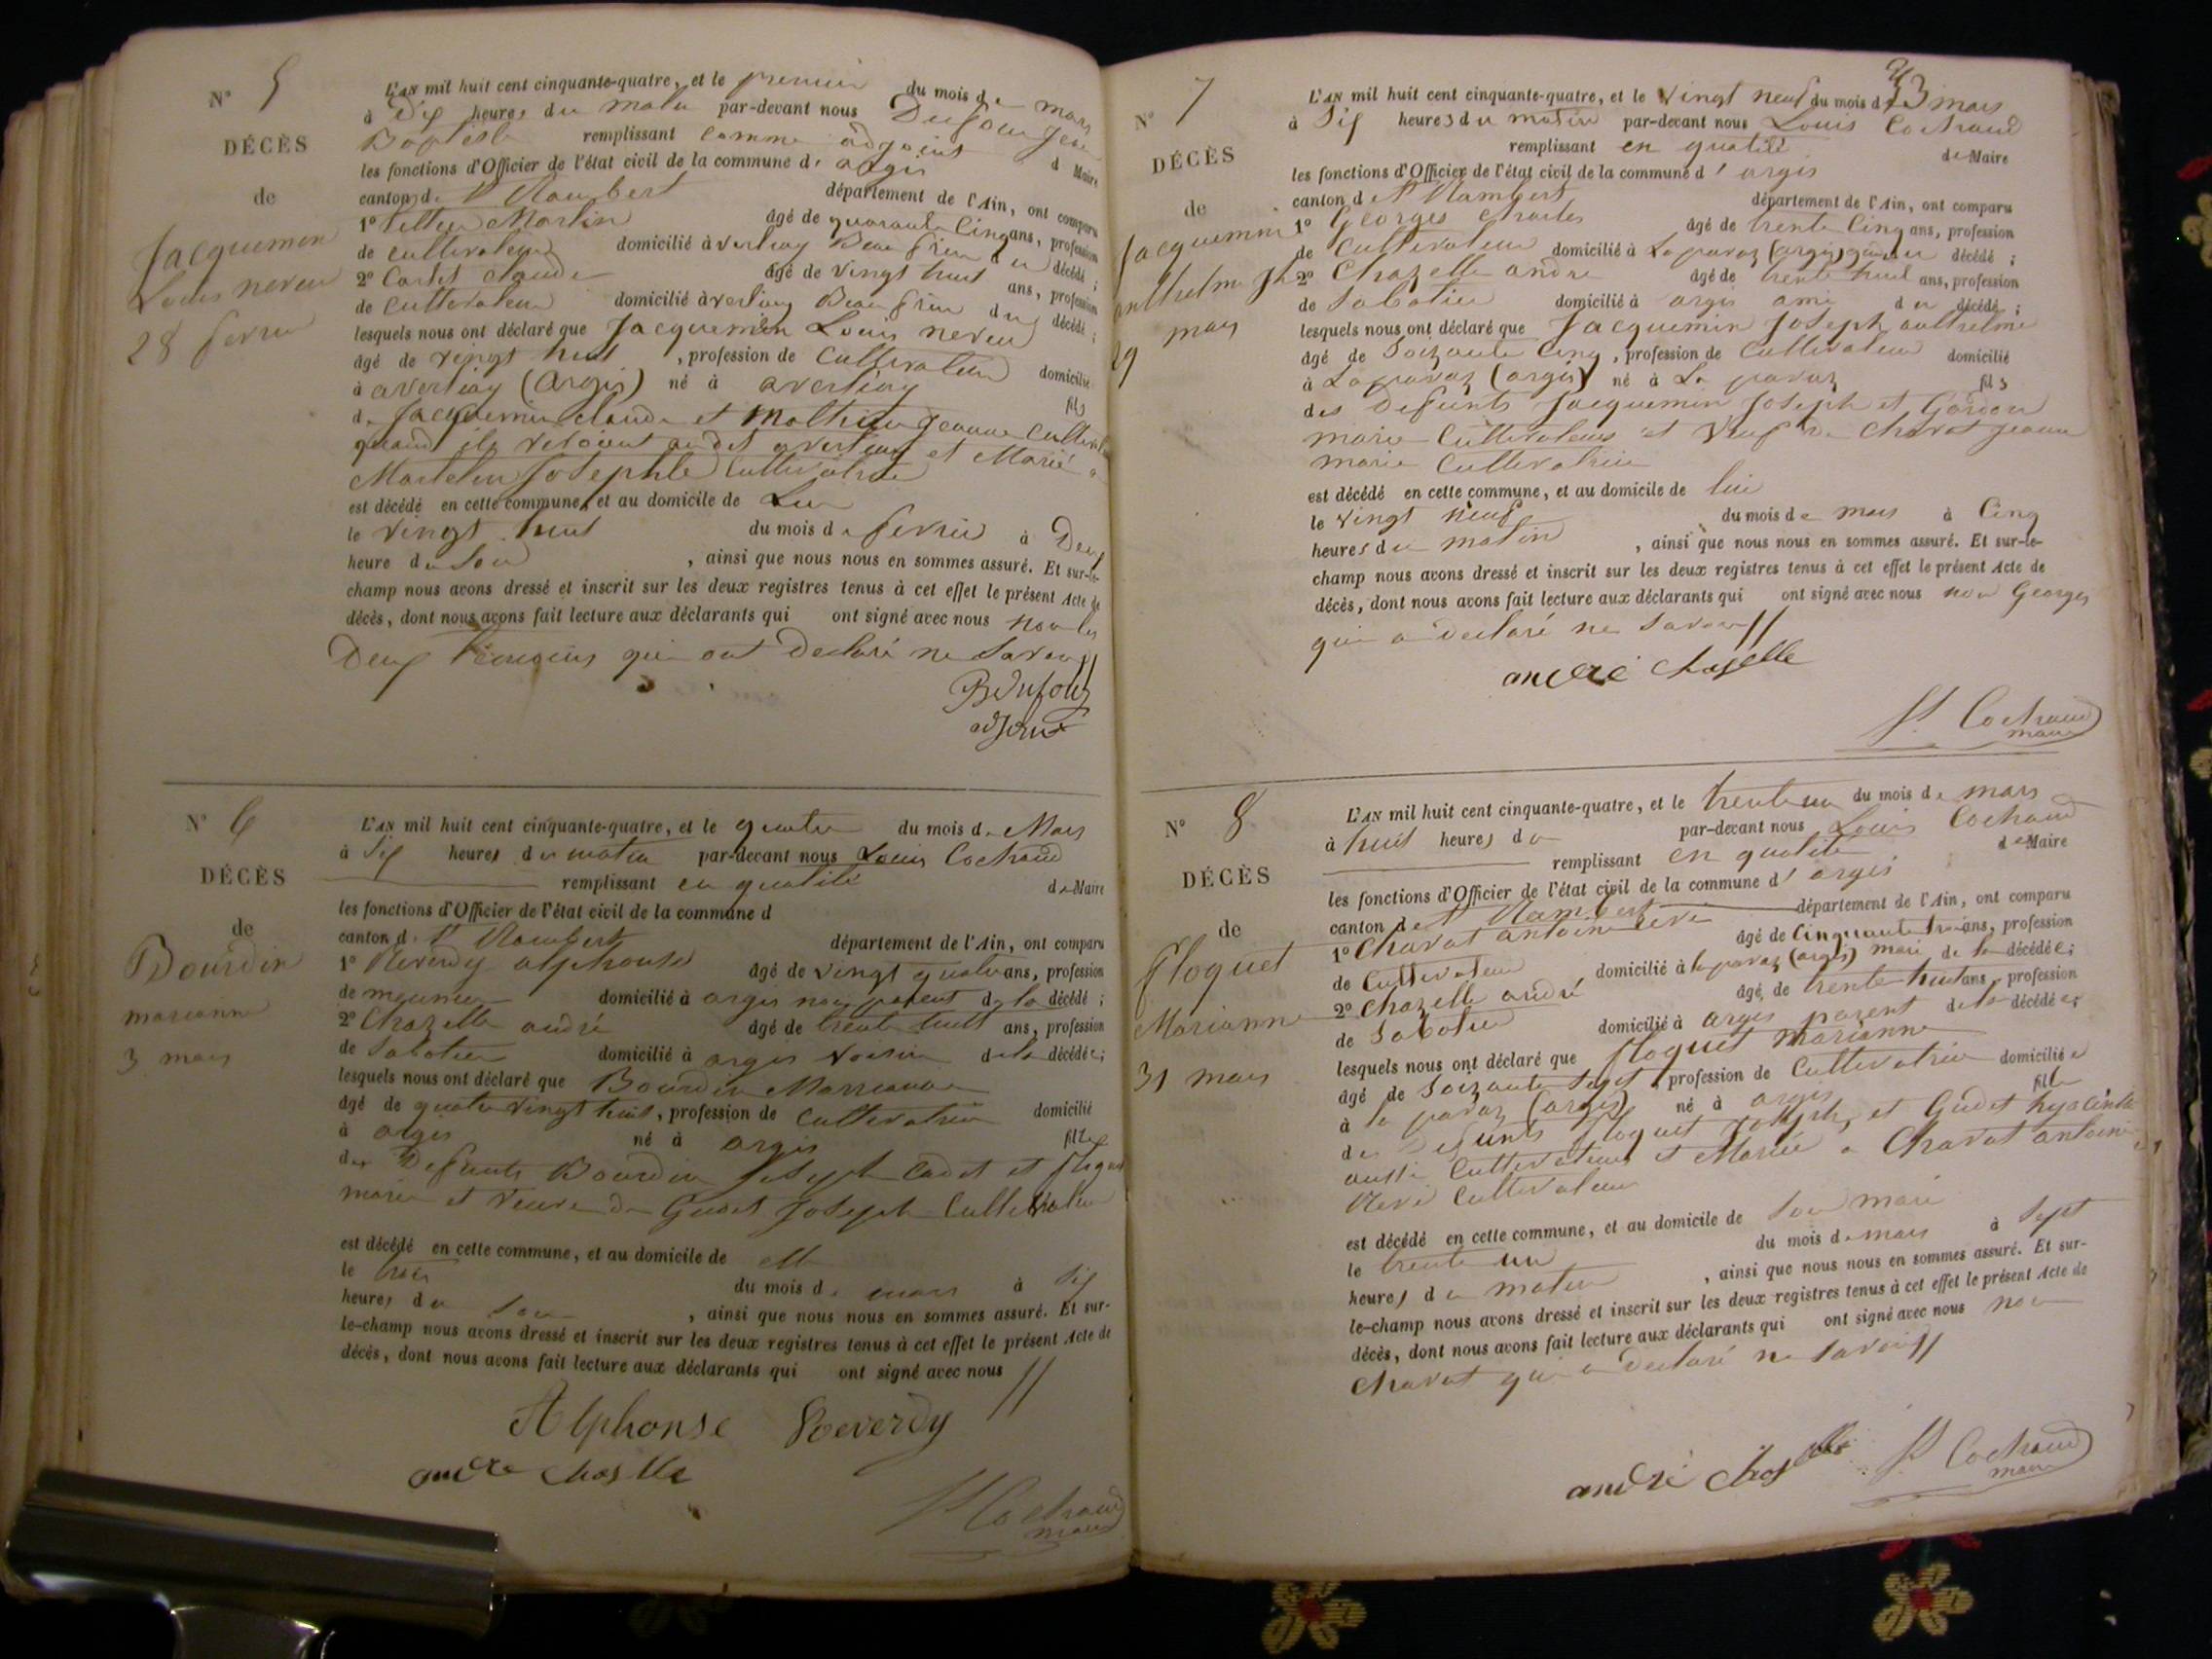 N° 5
DÉCÈS
de
Jacquemin
Louis neveu
28 fevrier
L'AN mil huit cent cinquante-quatre, et le premier du mois de mars
à Dix heures du matin par-devant nous Dufour Jean
Baptiste remplissant comme adjoint d Maire
les fonctions d'Officier de l'état civil de la commune d' argis
canton de St Rambert département de l'Ain, ont comparu
1° Martin âgé de quarante Cinq ans, profession
de cultivateur domicilié à Beau frere du décédé ;
2° claude âgé de Vingt huit ans, profession
de Cultivateur domicilié à Beau frere du décédé ;
lesquels nous ont déclaré que Jacquemin Louis neveu
âgé de vingt huit , profession de Cultivateur domicilié
à averliaz (Argis) né à averliaz fils
de Jacquemin claude et Mathieu Jeanne
quand ils vivaient audit averliaz et Marié a
Martelin Josephte Cultivatrice
est décédé en cette commune, et au domicile de Lui
le vingt huit du mois de fevrier à Deux
heure du Soir , ainsi que nous nous en sommes assuré. Et sur-le-
champ nous avons dressé et inscrit sur les deux registres tenus à cet effet le présent Acte de
décès, dont nous avons fait lecture aux déclarants qui ont signé avec nous non les
Deux temoins qui ont Declaré ne Savoir //
B Dufour
adjoint
N° 6
DÉCÈS
de
Bourdin
marianne
3 mars
L'AN mil huit cent cinquante-quatre, et le quatre du mois de Mars
à Six heures du matin par-devant nous Louis Cochaud
remplissant en qualité de Maire
les fonctions d'Officier de l'état civil de la commune d
canton de St Rambert département de l'Ain, ont comparu
1° Reverdy alphonse âgé de vingt quatre ans, profession
de meunier domicilié à argis non parent de la décédé ;
2° Chazelle andré âgé de trente huit ans, profession
de Sabotier domicilié à argis Voisin de la décédée ;
lesquels nous ont déclaré que Bourdin Marianne
âgé de quatre vingt huit, profession de Cultivatrice domicilié
à argis né à argis fille
des Defunts Bourdin Joseph Cadet et floquet
marie et veuve de Gudet Joseph Cultivateur
est décédé en cette commune, et au domicile de elle
le trois du mois de mars à Six
heures du Soir , ainsi que nous nous en sommes assuré. Et sur-
le-champ nous avons dressé et inscrit sur les deux registres tenus à cet effet le présent Acte de
décès, dont nous avons fait lecture aux déclarants qui ont signé avec nous //
Alphonse Reverdy
andre chaselle
Cochaud
maire
N° 7
DÉCÈS
de
Jacquemin
anthelme Jh
29 mars
L'AN mil huit cent cinquante-quatre, et le Vingt neuf du mois de mars
à Six heures du matin par-devant nous Louis Cochaud
remplissant en qualité de Maire
les fonctions d'Officier de l'état civil de la commune d' argis
canton de St Rambert département de l'Ain, ont comparu
1° Georges Charles âgé de trente Cinq ans, profession
de Cultivateur domicilié à La paraz (argis) gendre du décédé ;
2° Chazelle andré âgé de trente huit ans, profession
de Sabotier domicilié à argis ami du décédé ;
lesquels nous ont déclaré que Jacquemin Joseph anthelme
âgé de Soixante Cinq , profession de Cultivateur domicilié
à La paraz (argis) né à La paraz fils
des Defunts Jacquemin Joseph et Gordon
marie Cultivateurs et Veuf de Charat Jeanne
marie Cultivatrice
est décédé en cette commune, et au domicile de lui
le vingt neuf du mois de mars à Cinq
heures du matin , ainsi que nous nous en sommes assuré. Et sur-le-
champ nous avons dressé et inscrit sur les deux registres tenus à cet effet le présent Acte de
décès, dont nous avons fait lecture aux déclarants qui ont signé avec nous non Georges
qui a declaré ne Savoir //
andré chaselle
Cochaud
maire
N° 8
DÉCÈS
de
floquet
Marianne
31 mars
L'AN mil huit cent cinquante-quatre, et le trente un du mois de mars
à huit heures du par-devant nous Louis Cochaud
remplissant en qualité de Maire
les fonctions d'Officier de l'état civil de la commune d' argis
canton de St Rambert département de l'Ain, ont comparu
1° Charat antoine René âgé de Cinquante trois ans, profession
de Cultivateur domicilié à la paraz (argis) mari de la décédée ;
2° Chazelle andré âgé de trente huit ans, profession
de Sabotier domicilié à argis parent de la décédée ;
lesquels nous ont déclaré que floquet Marianne
âgé de Soixante Sept , profession de Cultivatrice domiciliée
à la paraz (argis) né à argis fille
des Defunts floquet Joseph et Gudet hyacinthe
aussi Cultivateurs et Mariée a Charat antoine
René Cultivateur
est décédé en cette commune, et au domicile de Son mari
le trente un du mois de mars à Sept
heures du matin , ainsi que nous nous en sommes assuré. Et sur-
le-champ nous avons dressé et inscrit sur les deux registres tenus à cet effet le présent Acte de
décès, dont nous avons fait lecture aux déclarants qui ont signé avec nous non
Charat qui a declaré ne Savoir //
andré chaselle
Cochaud
maire